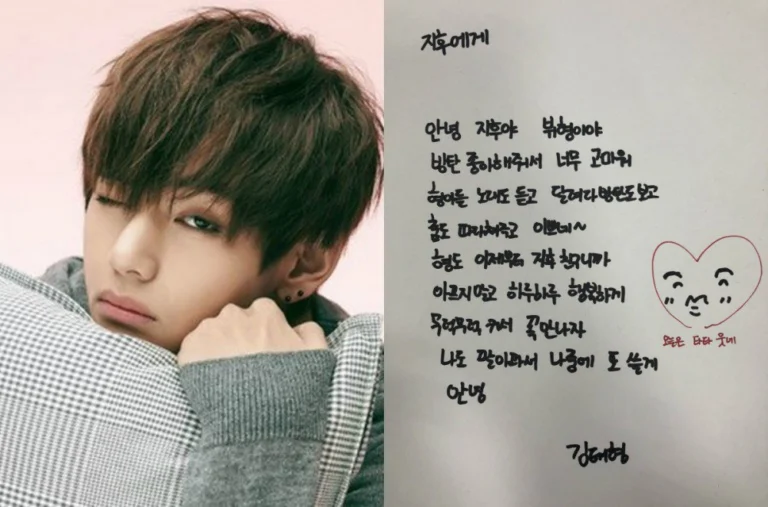 지후에게
안녕 지후야 뷔형이야
방탄 좋아해줘서 너무 고마워
형아들 노래도 듣고 달려라 방탄도 보고
춤도 따라해주고 이쁘네~
형도 이제부터 지후 친구니까
아프지말고 하루하루 행복하게
무럭무럭 커서 꼭 만나자
나도 팔아파서 나중에 또 쓸게
안녕
오늘은 타타 웃네
김태형